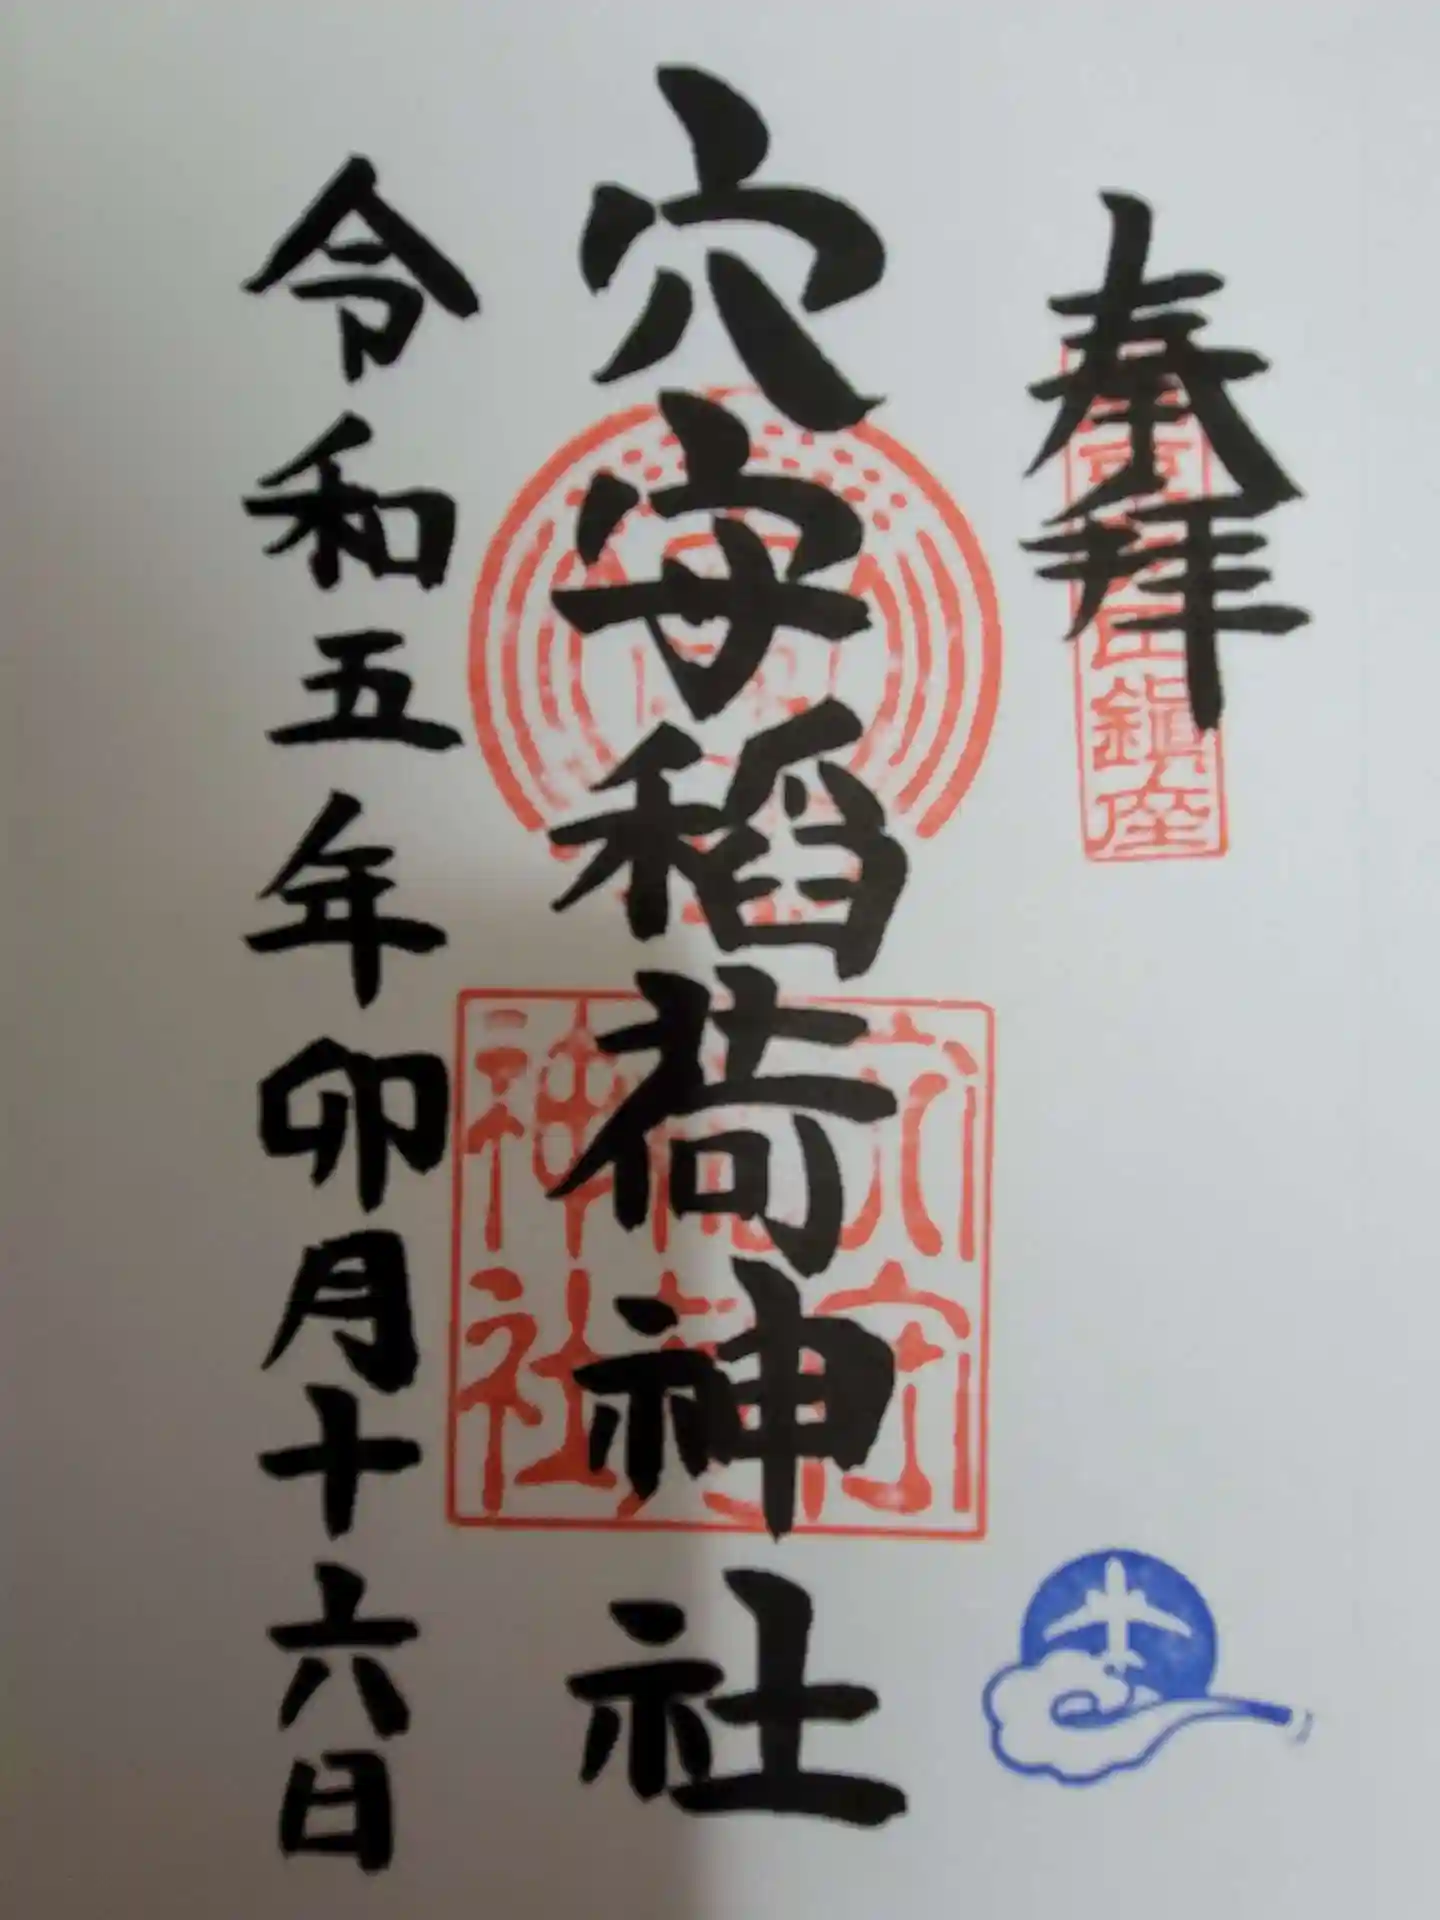 奉拝
田鎭座
穴守稲荷神社
穴守
神社
令和五年卯月十六日